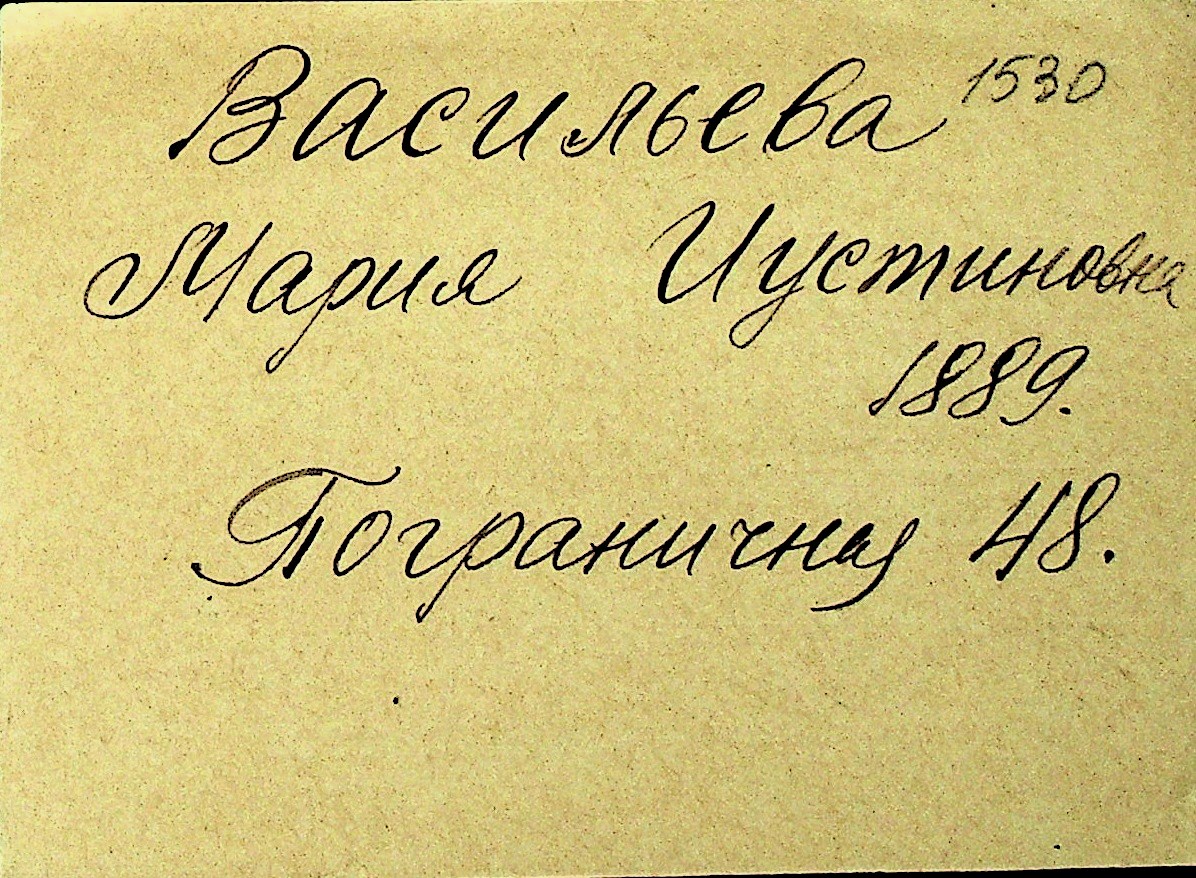 Васильева 1530
Мария Иустиновна
1889.
Пограничная 48.